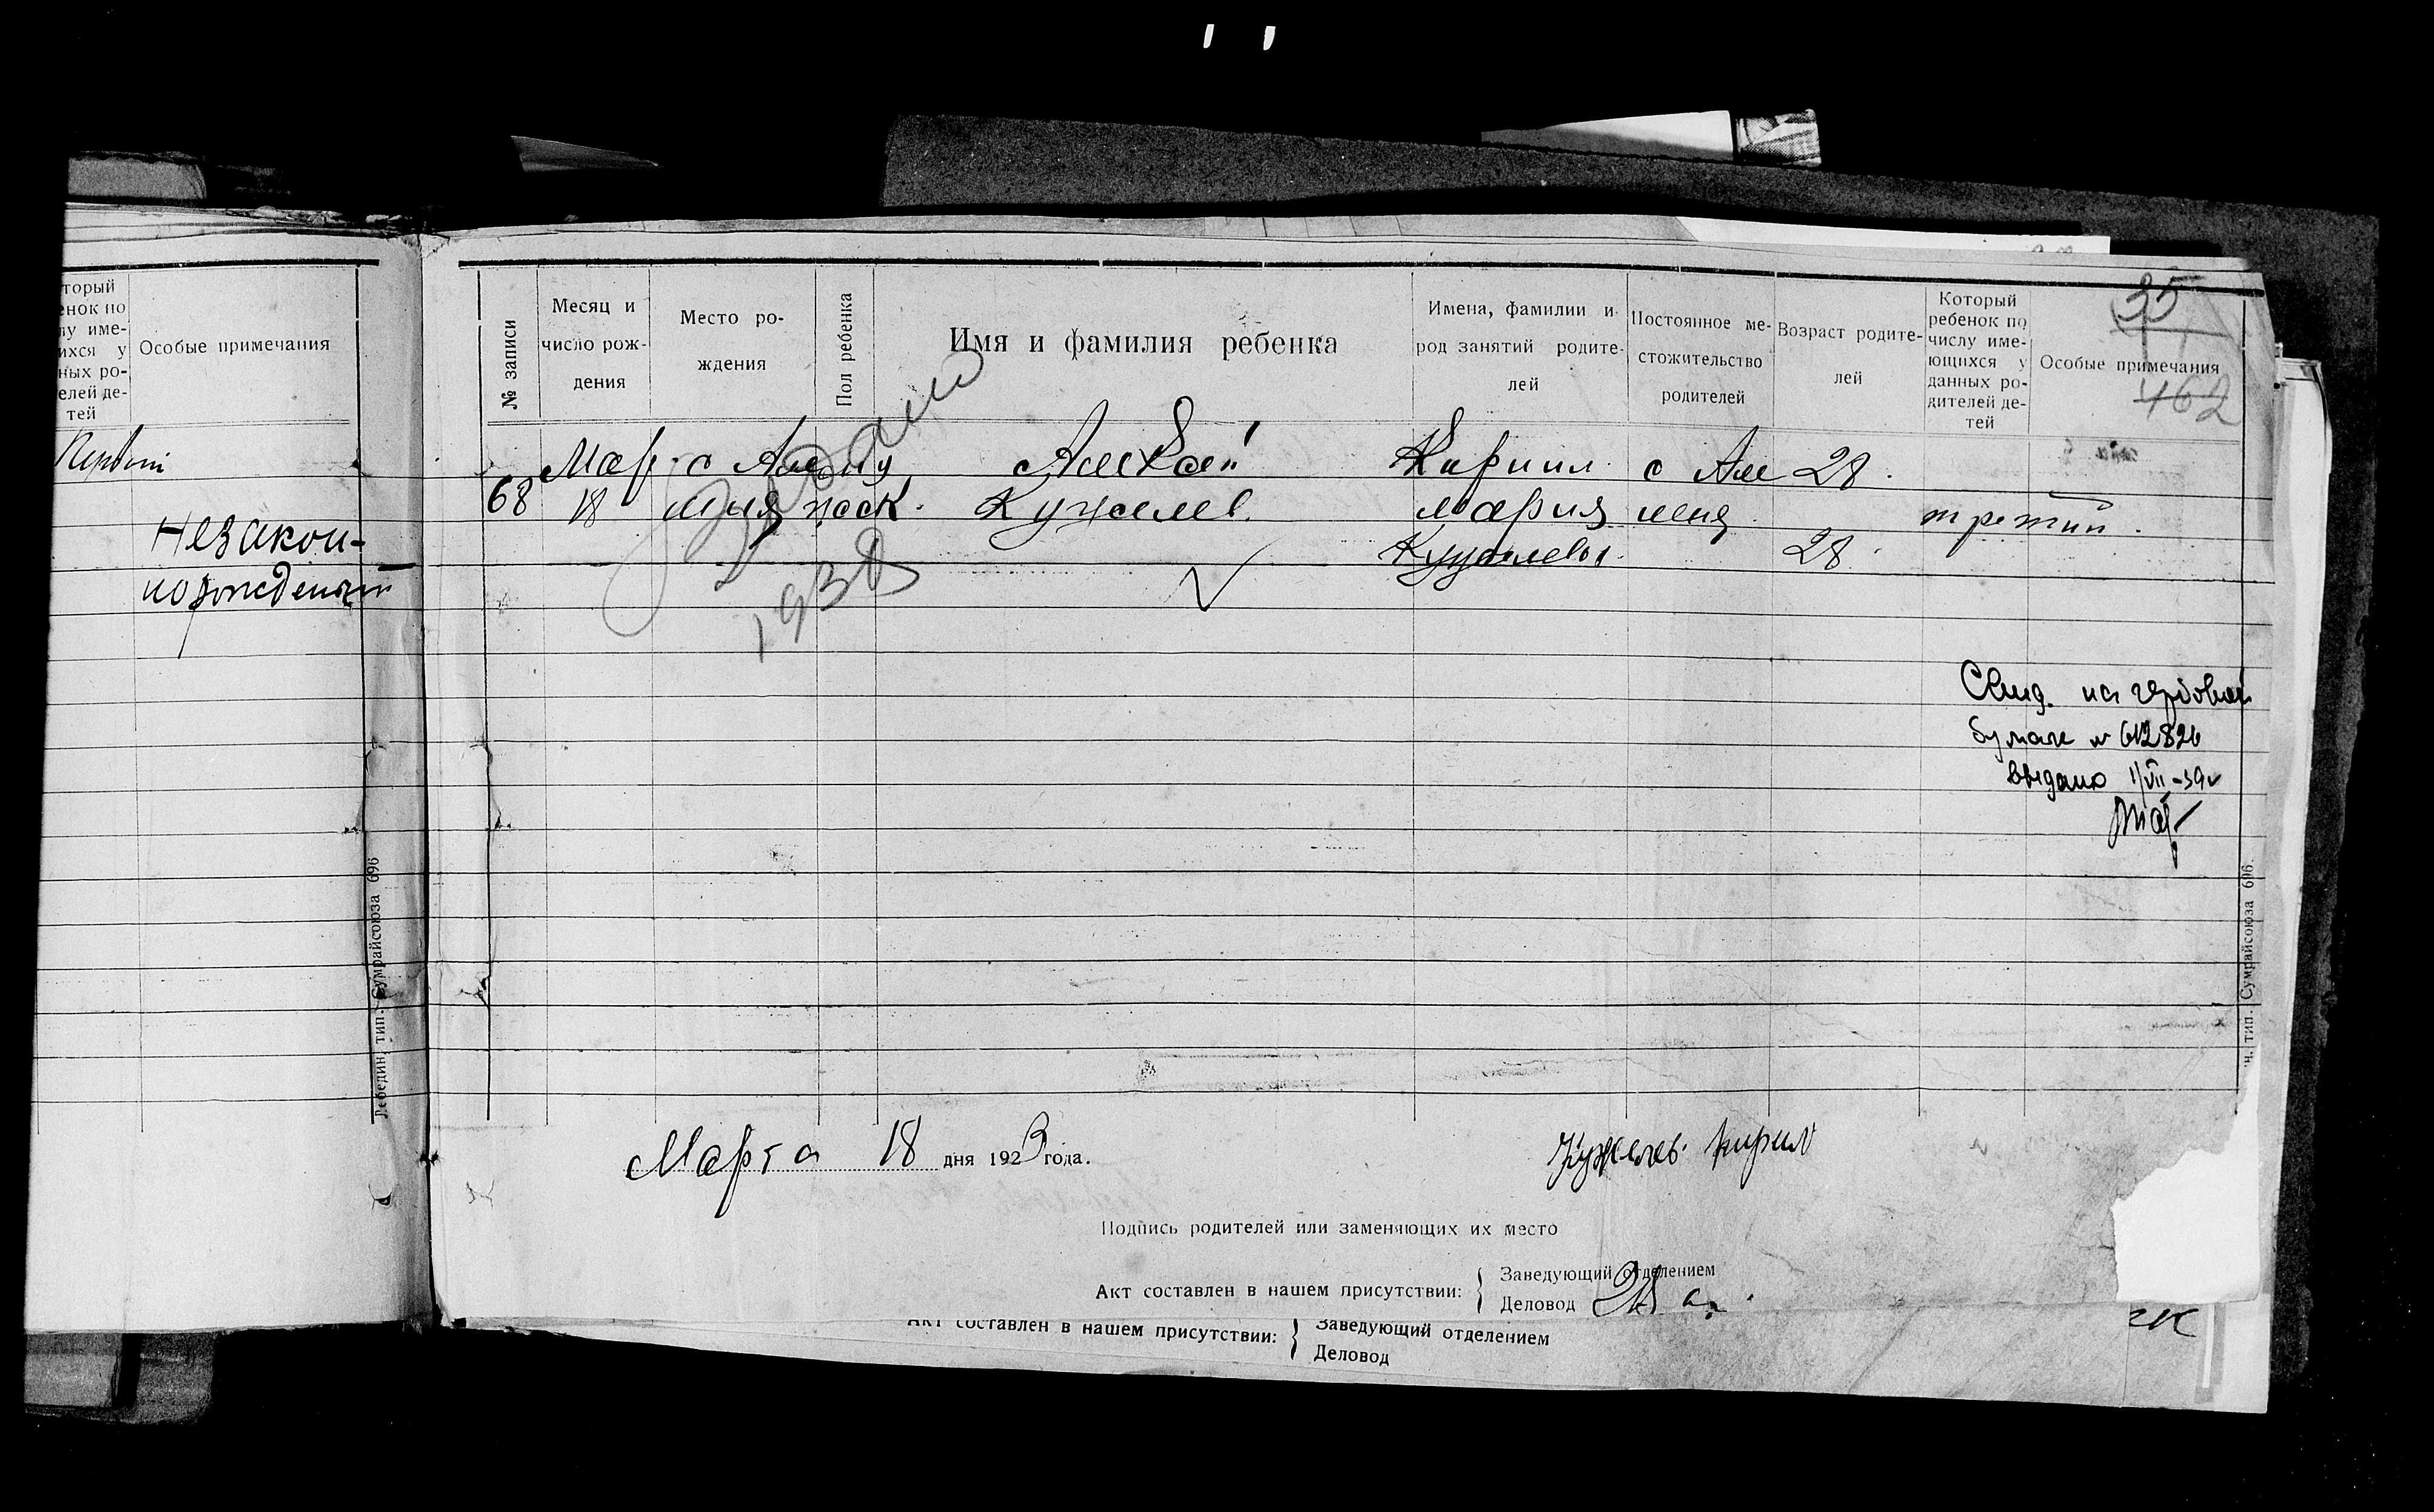 торый
енок по
лу име-
ихся у
ных ро-
елей де-
тей
Особые примечания
Первый
Незакон-
норожденый
Лебедин. тип. Сумрайсоюза 696
№ записи
Месяц и
число рож-
дения
Место ро-
ждения
Пол ребенка
Имя и фамилия ребенка
Имена, фамилии и
род занятий родите-
лей
Постоянное ме-
стожительство
родителей
Возраст родите-
лей
Который
ребенок по
числу име-
ющихся у
данных ро-
дителей де-
тей
Особые примечания
35
462
Мар. с Алексей Кирил. с Але 28.
68 18 шня Кужелев. мария шня третий.
28.
1938
Свид. на гербовой
бумаге № 612826
выдано 1/VII-39
Марта 18 дня 1923 года.
Кужелев. кирил
Подпись родителей или заменяющих их место
Акт составлен в нашем присутствии:
Заведующий отделением
Деловод
Акт составлен в нашем присутствии:
Заведующий отделением
Деловод
н. тип. Сумрайсоюза 696.